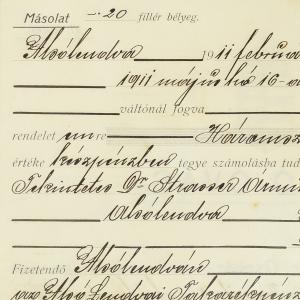 Másolat -·20 fillér bélyeg.
Alsólendva 1911 februá
1911 május hó 16-á
váltónál fogva
rendelet em re Háromsz
értéke készpénzben tegye számolásba tud
Tekintetes Dr Strasser Ármin
Alsólendva
Fizetendő Alsólendván
az Alsó Lendvai Takarékpénz